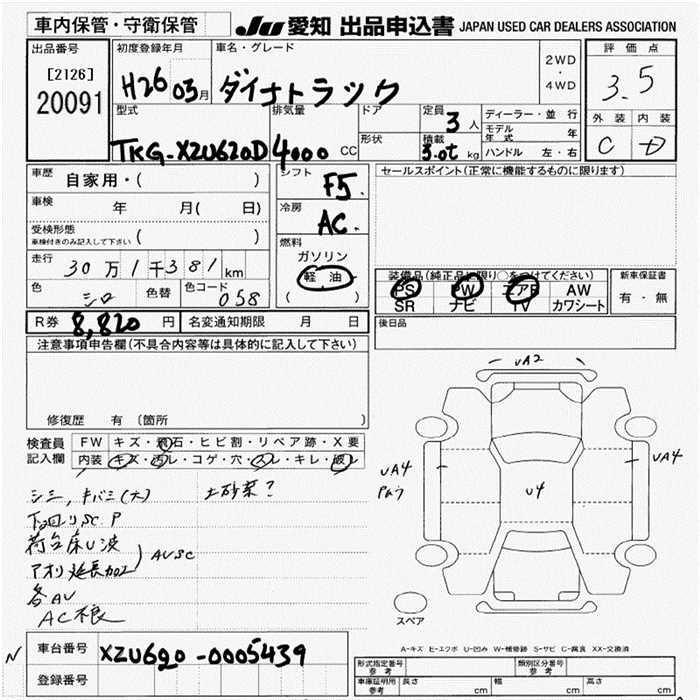 車内保管・守衛保管
JU 愛知 出品申込書 JAPAN USED CAR DEALERS ASSOCIATION
出品番号
[2126]
20091
初度登録年月
H26 03月
車名・グレード
ダイナトラック
2WD
・
4WD
評価点
3.5
外装 内装
C D
型式
TKG-XZU620D
排気量
4000 CC
ドア
形状
定員
3 人
積載
3.0t kg
ディーラー・並行
モデル年式 年
ハンドル 左・右
車歴
自家用・( )
車検
年 月( 日)
受検形態
車検付きのみ記入して下さい ( )
走行
30万1千381km
色
シロ
色替
色コード
058
シフト
F5
冷房
AC
燃料
ガソリン
軽油
( )
セールスポイント(正常に機能するものに限ります)
装備品(純正品に限り○をつけてください)
PS PW エアB AW
SR ナビ TV カワシート
新車保証書
有・無
R券 8,820 円
名変通知期限 月 日
後日品
注意事項申告欄(不具合内容等は具体的に記入して下さい)
修復歴 有 〔箇所 〕
検査員
記入欄
FW キズ・飛石・ヒビ割・リペア跡・X要
内装 キズ・汚レ・コゲ・穴・スレ・キレ・破レ
シミ,キバミ(大)
土砂菜?
下回リSC.P
荷台床U波
アオリ延長加工
AUSC
各AU
AC不良
UA2
UA4
U4
UA4
スペア
A-キズ E-エクボ U-凹み W-補修跡 S-サビ C-腐食 XX-交換済
N
車台番号
XZU620-0005439
登録番号
形式指定番号
参考
類別区分番号
参考
車庫証明用
参考
長さ cm
幅 cm
高さ cm